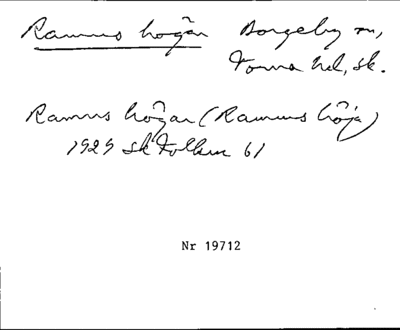 Ramus högar Borgeby sn,
Torna hd, sk.
Ramus högar (Ramus höja)
1929 sk Folkm 61
Nr 19712